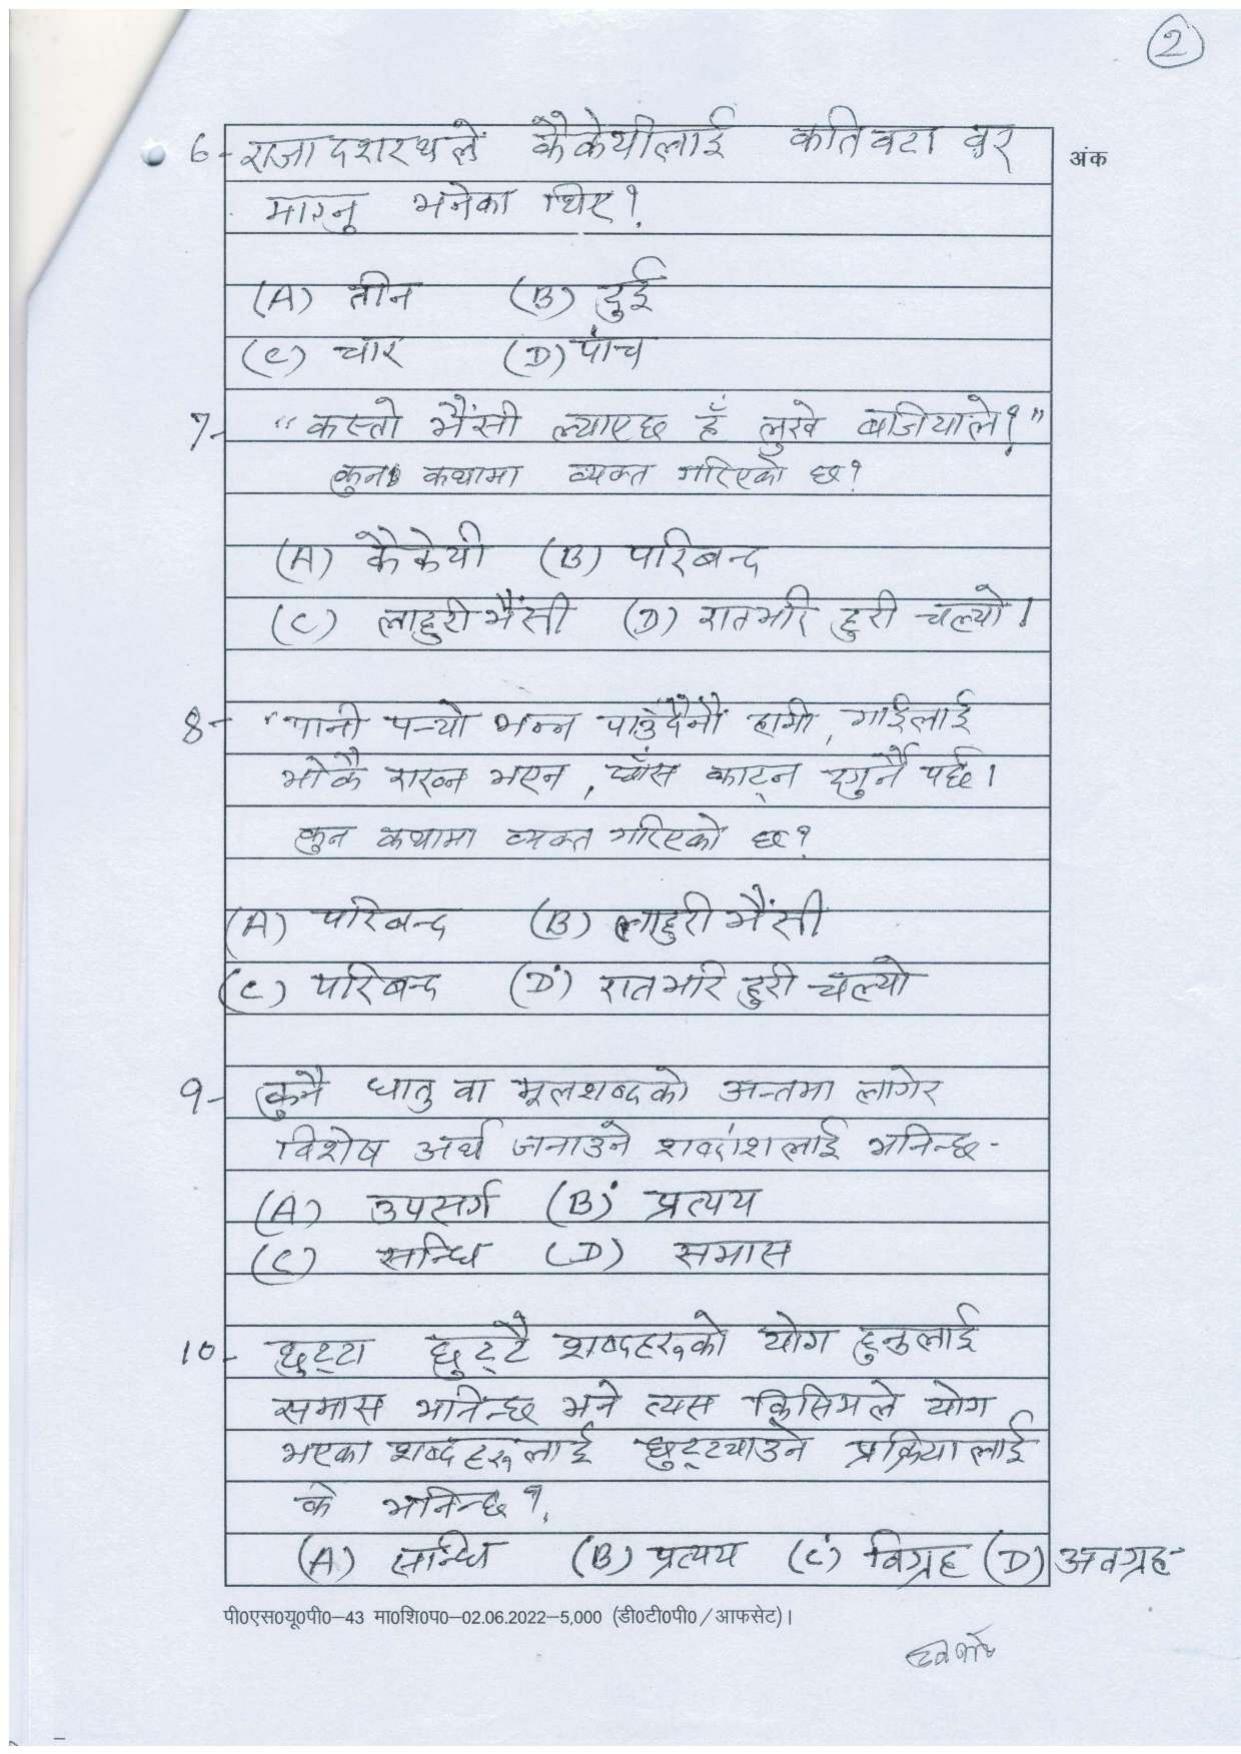 2
6- राजा दशरथले कैकेयीलाई कतिवटा वर
अंक
माग्नु भनेका थिए?
(A) तीन (B) दुई
(C) चार (D) पांच
7- "कस्तो भैंसी ल्याएछ हँ लुखे बजियाले?"
कुन कथामा व्यक्त गरिएको छ?
(A) कैकेयी (B) परिबन्द
(C) लाहुरी भैंसी (D) रातभरि हुरी चल्यो।
8- "पानी पर्‍यो भन्न पाउँदैनौं हामी, गाईलाई
भोकै राख्न भएन, घाँस काट्न दगुर्नै पर्छ।
कुन कथामा व्यक्त गरिएको छ?
(A) परिबन्द (B) लाहुरी भैंसी
(C) परिबन्द (D) रातभरि हुरी चल्यो
9- कुनै धातु वा मूलशब्दको अन्तमा लागेर
विशेष अर्थ जनाउने शब्दांशलाई भनिन्छ-
(A) उपसर्ग (B) प्रत्यय
(C) सन्धि (D) समास
10- छुट्टा छुट्टै शब्दहरूको योग हुनुलाई
समास भनिन्छ भने त्यस किसिमले योग
भएका शब्दहरूलाई छुट्ट्याउने प्रक्रियालाई
के भनिन्छ?
(A) सन्धि (B) प्रत्यय (C) विग्रह (D) अवग्रह
पी0एस0यू0पी0–43 मा0शि0प0–02.06.2022–5,000 (डी0टी0पी0/आफसेट)।